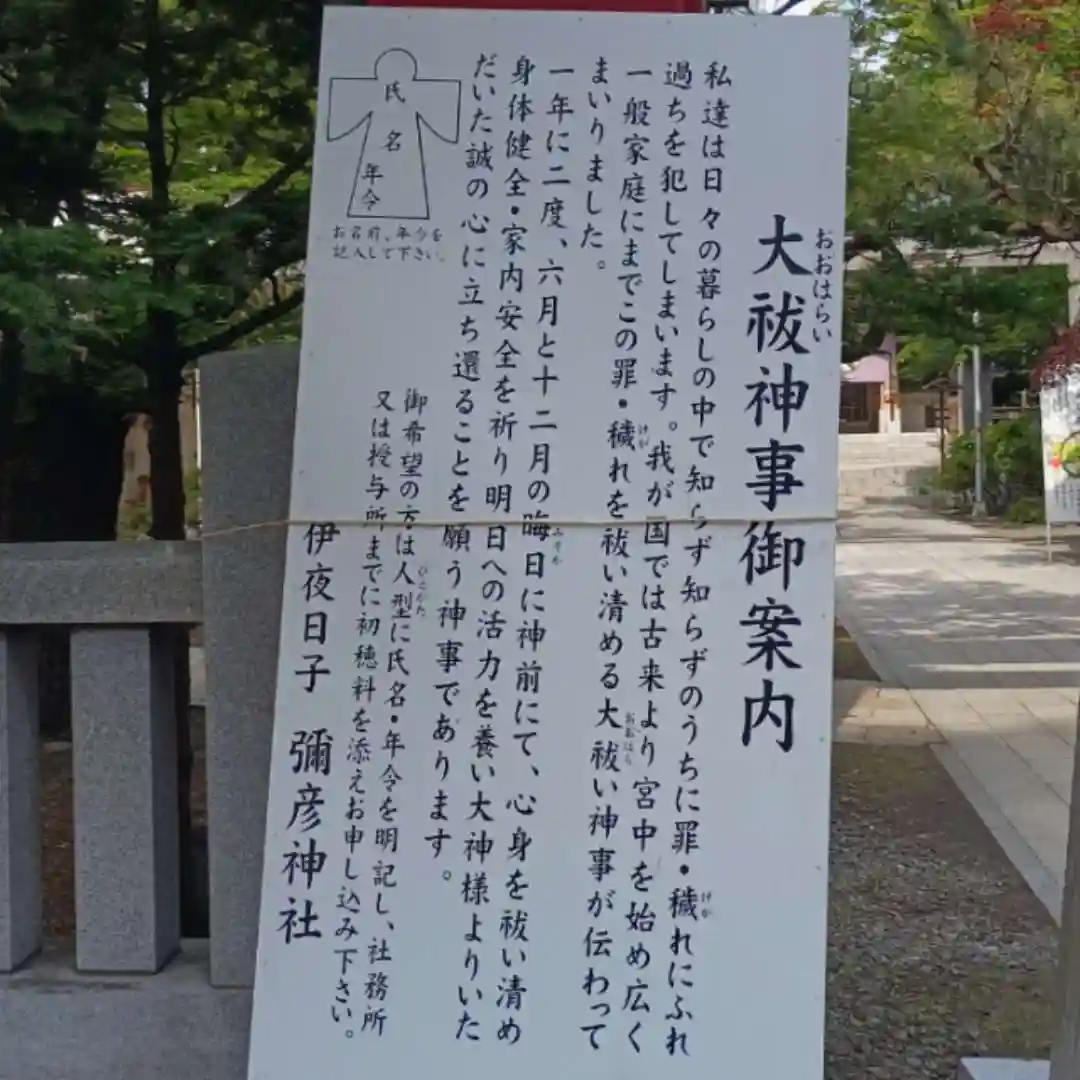 大祓神事御案内
おおはらい
私達は日々の暮らしの中で知らず知らずのうちに罪・穢れにふれ
けが
過ちを犯してしまいます。我が国では古来より宮中を始め広く
一般家庭にまでこの罪・穢れを祓い清める大祓い神事が伝わって
けが
おおはら
まいりました。
一年に二度、六月と十二月の晦日に神前にて、心身を祓い清め
みそか
身体健全・家内安全を祈り明日への活力を養い大神様よりいた
だいた誠の心に立ち還ることを願う神事であります。
氏名
年令
お名前、年令を
記入して下さい。
御希望の方は人型に氏名・年令を明記し、社務所
ひとがた
又は授与所までに初穂料を添えお申し込み下さい。
伊夜日子 彌彦神社